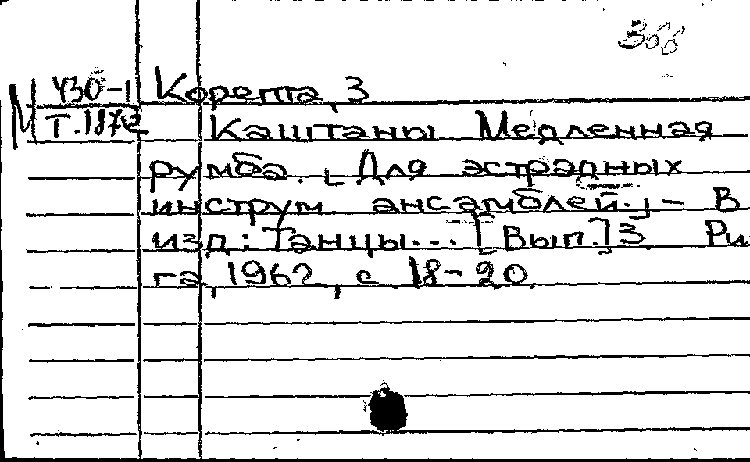 366
М У30-1 Корепта, З
Т.1872 Каштаны Медленная
румба. [Для эстрадных
инструм ансамблей.] - В
изд: Танцы... [Вып.] 3. Ри
га, 1962, с 18-20.